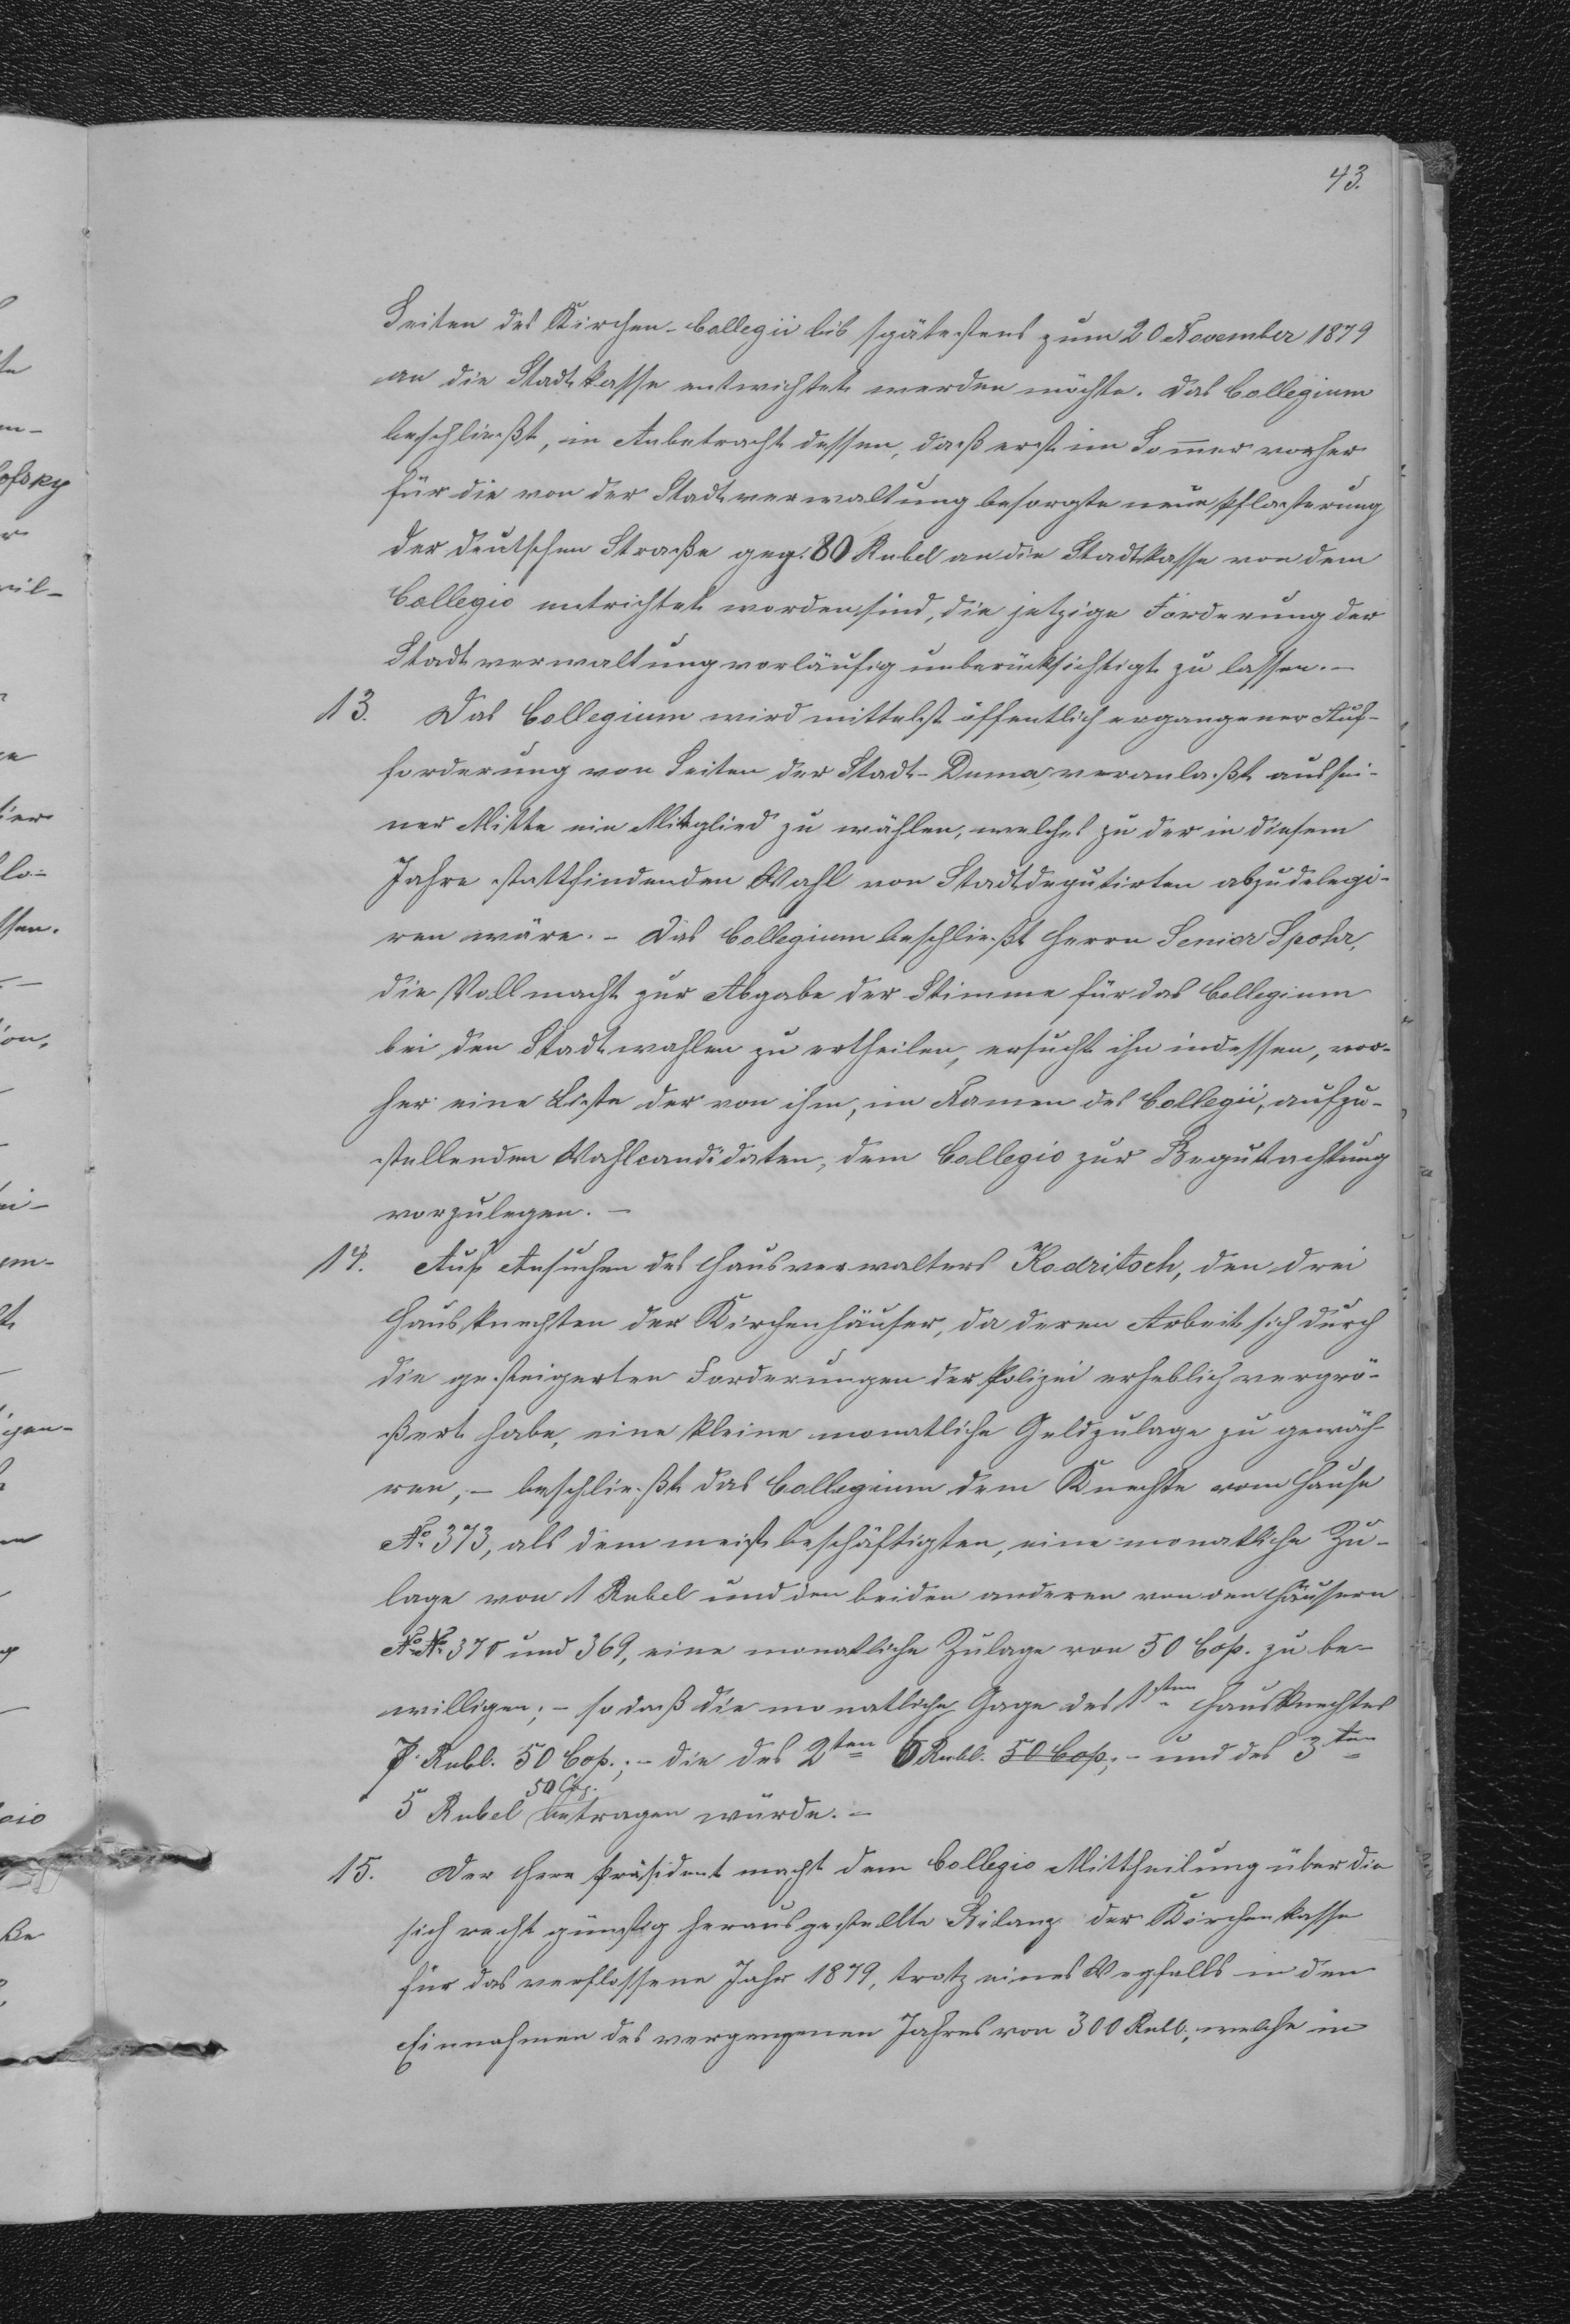 43.
Seiten des Kirchen-Collegii bis spätestens zum 20 November 1879
an die Stadtkasse entrichtet werden möchte. Das Collegium
beschließt, in Anbetracht dessen, daß erst im Som̄er vorher
für die von der Stadtverwaltung besorgte neue Pflasterung
der deutschen Straße geg. 80 Rubel an die Stadtkasse von dem
Collegio entrichtet worden sind, die jetzige Forderung der
Stadtverwaltung vorläufig unberücksichtigt zu lassen. –
13. Das Collegium wird mittelst öffentlich ergangener Auf-
forderung von Seiten der Stadt-Duma, veranlaßt aus sei-
ner Mitte ein Mitglied zu wählen, welches zu der in diesem
Jahre stattfindenden Wahl von Stadtdeputirten abzudelegi-
ren wäre. – Das Collegium beschließt Herrn Senior Spohr,
die Vollmacht zur Abgabe der Stimme für das Collegium
bei den Stadtwahlen zu ertheilen, ersucht ihn indessen, vor-
her eine Liste der von ihm, im Namen des Collegii, aufzu-
stellenden Wahlcandidaten, dem Collegio zur Begutachtung
vorzulegen. –
14. Auf Ansuchen des Hausverwalters Kodritsch, den drei
Hausknechten der Kirchenhäuser, da deren Arbeit sich durch
die gesteigerten Forderungen der Polizei erheblich vergrö-
ßert habe, eine kleine monatliche Geldzulage zu gewäh-
ren, – beschließt das Collegium dem Knechte vom Hause
No. 373, als dem meist beschäftigten, eine monatliche Zu-
lage von 1 Rubel und den beiden anderen von den Häusern
No. No. 370 und 369, eine monatliche Zulage von 50 Cop. zu be-
willigen; – so daß die monatliche Gage des 1sten Hausknechtes
7 Rubl. 50 Cop.; – die des 2ten 6 Rubl. 50 Cop; – und des 3ten
50 Cop.
5 Rubel betragen würde. –
15. Der Herr Präsident macht dem Collegio Mittheilung über die
sich recht günstig herausgestellte Bilanz der Kirchenkasse
für das verflossene Jahr 1879, trotz eines Wegfalls in den
Einnahmen des vergangenen Jahres von 300 Rubl., welche in